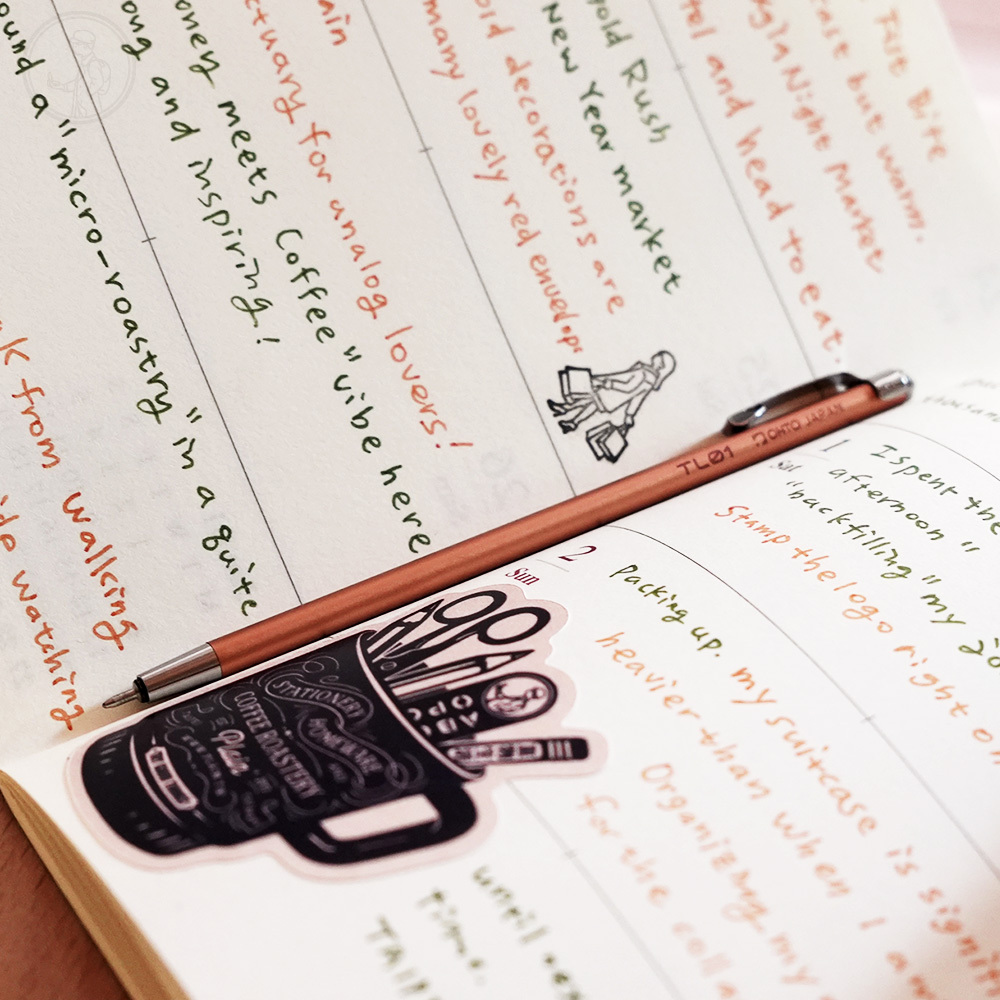 Bite
but warm.
Night Market
tel and head to eat.
old Rush
New Year market
decorations are
many lovely red
ain
ctuary for analog lovers!
oney meets Coffee" vibe here
ong and inspiring!
ound a "micro-roastry" in a quite
k from walking
watching
TL01 OHTO JAPAN
thousan
1
Sat
I spent the
afternoon
"backfilling" my 20
Stamp the logo right on
2
Sun
Packing up. my suitcase is signifi
heavier than when I a
Organizing my
for the colla
until
time.
STATIONERY
HOMEWARE
COFFEE ROASTERY
Plain